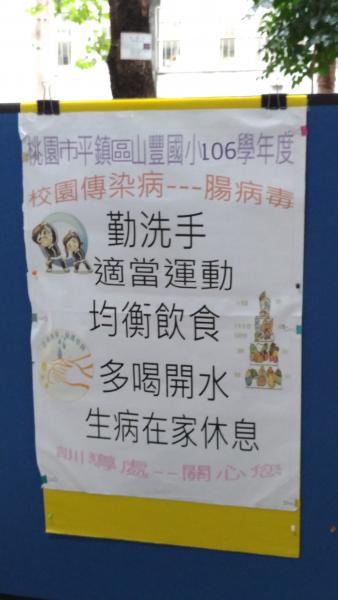 桃園市平鎮區山豐國小106學年度
校園傳染病---腸病毒
勤洗手
適當運動
均衡飲食
多喝開水
生病在家休息
訓導處--關心您